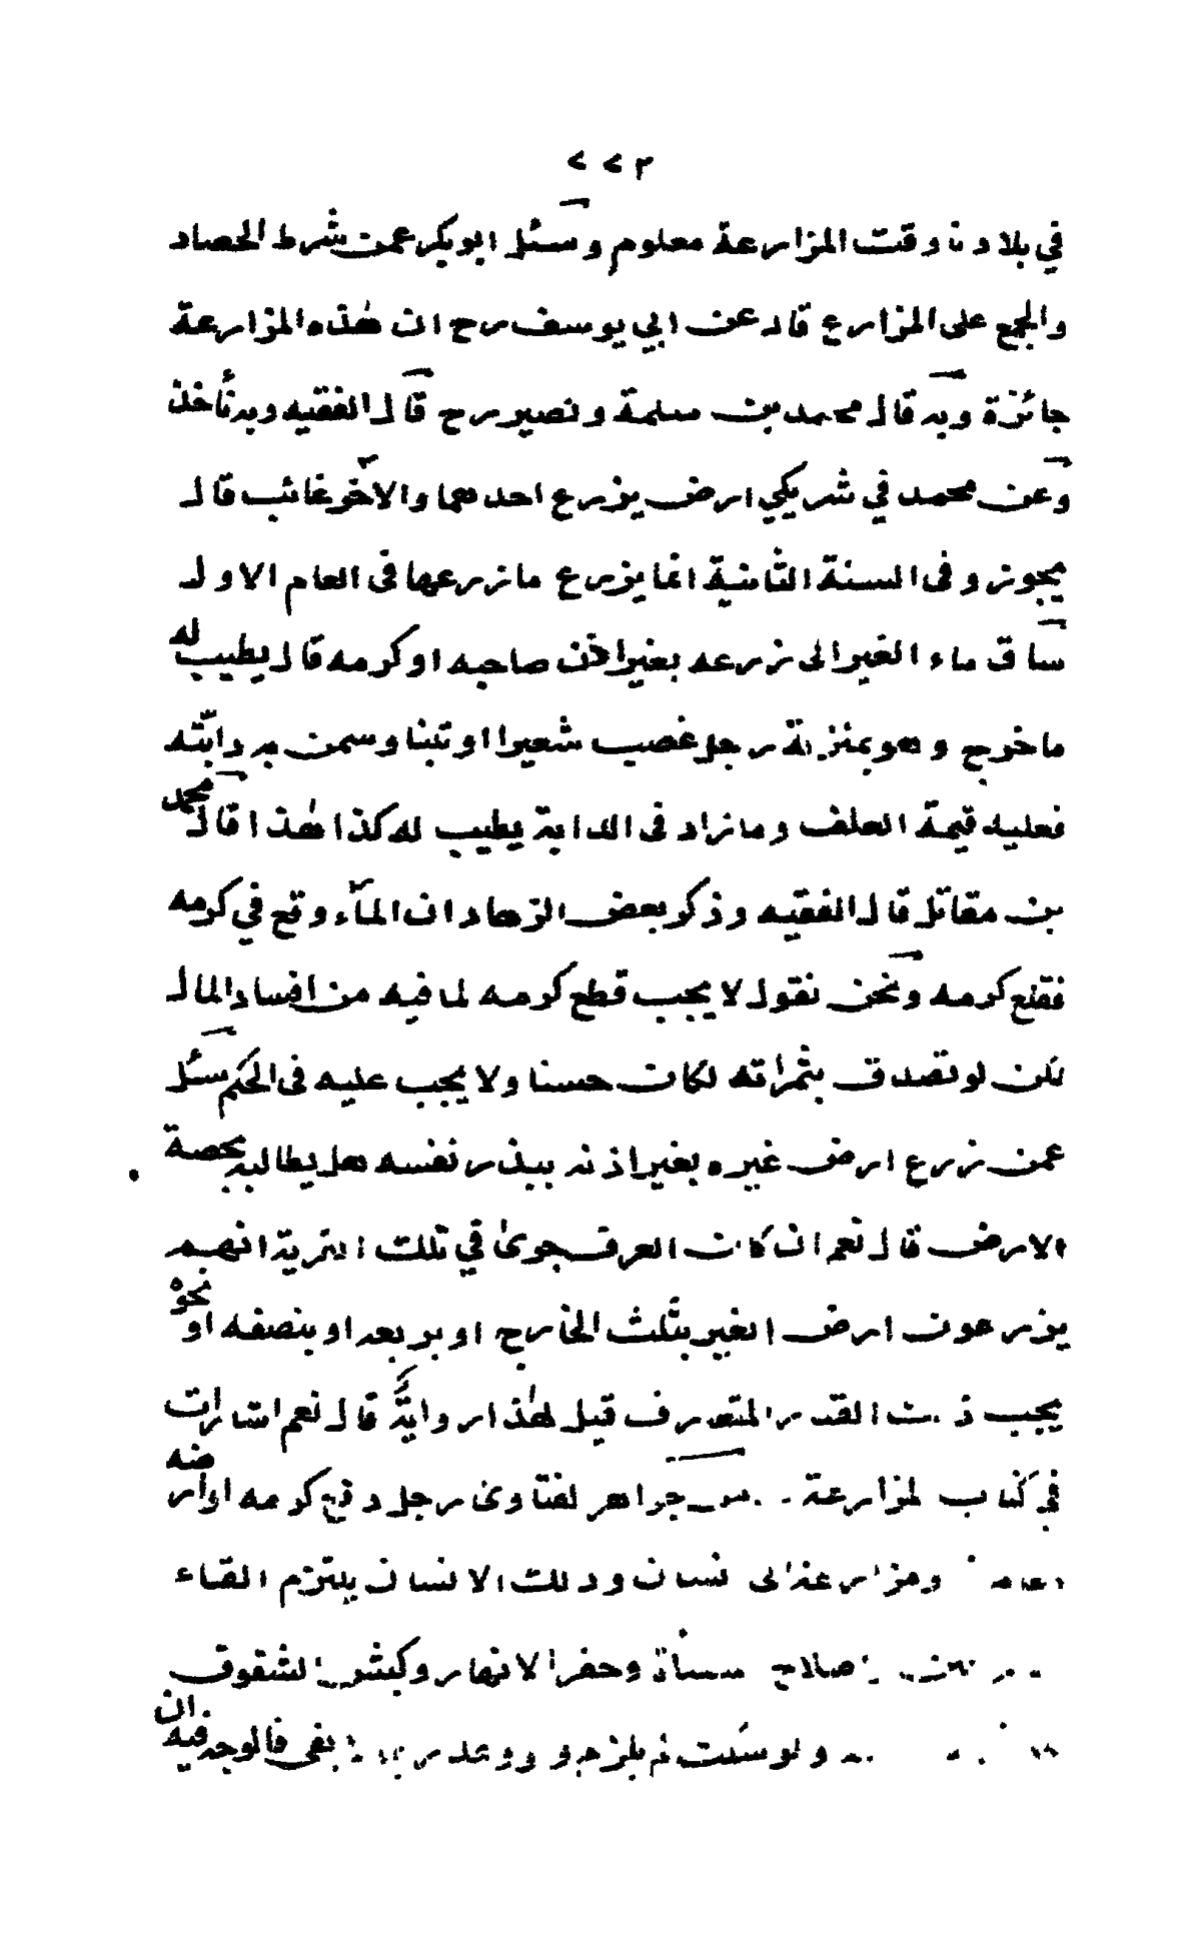 ٢٧٧
في بلادنا وقت المزارعة معلوم وسئل ابوبكر عمن شرط الحصاد
والجمع على المزارع قال عن ابي يوسف رح ان هٰذه المزارعة
جائزة وبه قال محمد بن سلمة ونصير رح قال الفقيه وبه نأخذ
وعن محمد في شريكي ارض يزرع احدهما والآخر غائب قال
يجوز وفى السنة الثانية انما يزرع ما زرعها فى العام الاول
ساق ماء الغير الى زرعه بغير اذن صاحبه او كرمه قال يطيب له
ما خرج وهو بمنزلة رجل غصب شعيرا او تبنا وسمن به دابّته
فعليه قيمة العلف وما زاد فى الدابة يطيب له كذا هٰذا قال محمد
بن مقاتل قال الفقيه وذكر بعض الزهاد ان المآء وقع في كرمه
فقطع كرمه ونحن نقول لا يجب قطع كرمه لما فيه من افساد المال
لكن لو تصدق بثمراته لكان حسنا ولا يجب عليه فى الحكم سئل
عمن زرع ارض غيره بغير اذنه ببذر نفسه هل يطالبه بحصة
الارض قال نعم ان كان العرف جرى في تلك القرية انهم
يزرعون ارض الغير بثلث الخارج او بربعه او بنصفه او نحوه
يجب ذلك القدر المتعارف قيل لهٰذا رواية قال نعم اشارات
في كتاب المزارعة جواهر الفتاوى رجل دفع كرمه او ارضه
ومزارعة الى انسان وذلك الانسان يلتزم القاء
اصلاح مسناة وحفر الانهار وكبس الشقوق
ولو سكت بقى فالوجه فيه ان